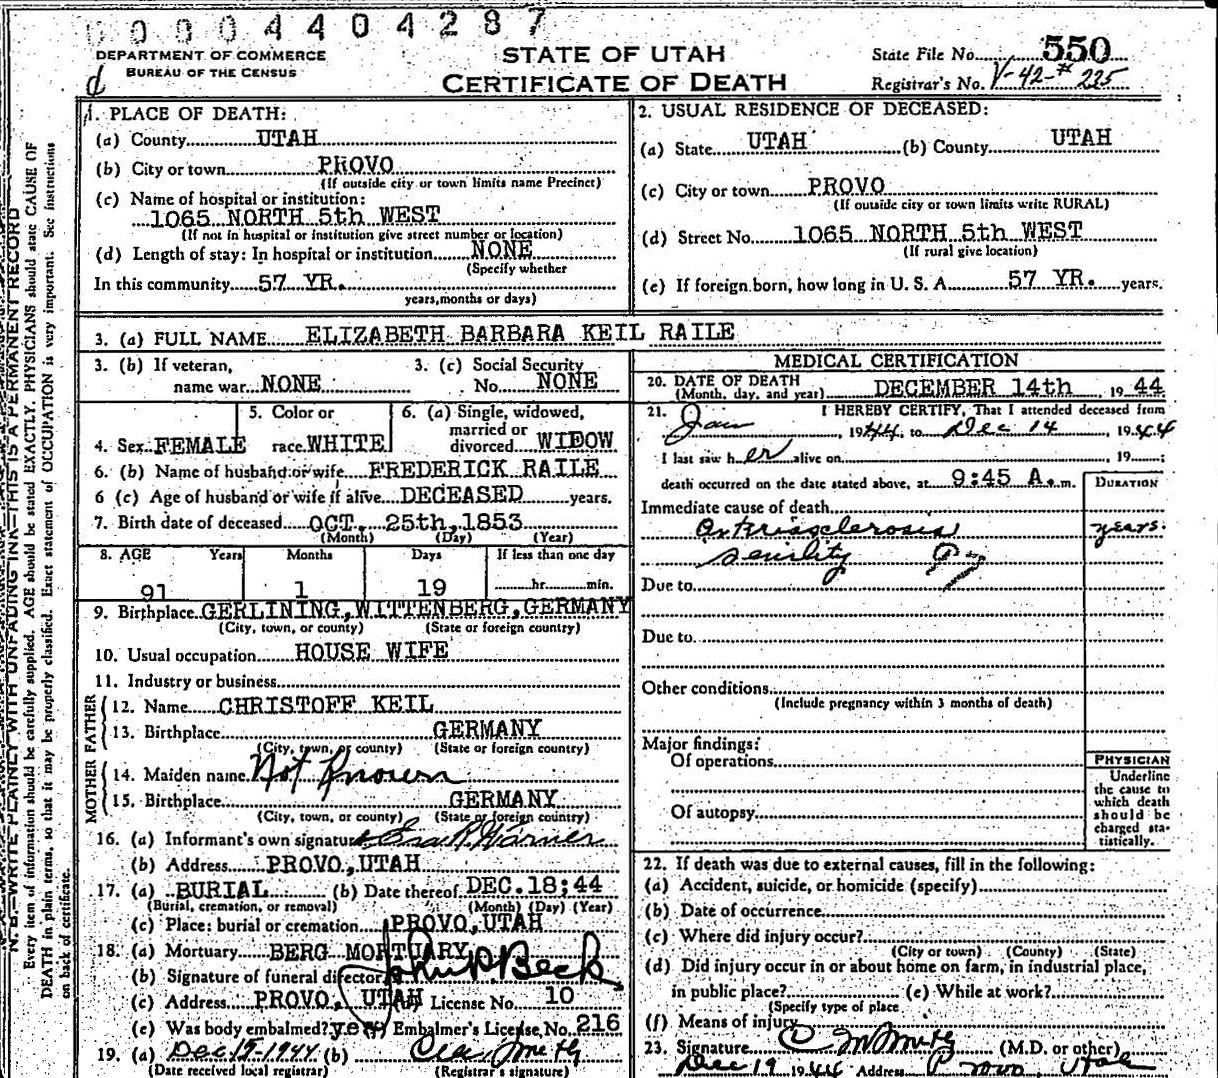 00004404287
DEPARTMENT OF COMMERCE
BUREAU OF THE CENSUS
STATE OF UTAH
CERTIFICATE OF DEATH
State File No. 550
Registrar's No. V-42-# 225
N. B.—WRITE PLAINLY WITH UNFADING INK—THIS IS A PERMANENT RECORD
Every item of information should be carefully supplied. AGE should be stated EXACTLY. PHYSICIANS should state CAUSE OF
DEATH in plain terms, so that it may be properly classified. Exact statement of OCCUPATION is very important. See instructions
on back of certificate.
1. PLACE OF DEATH:
(a) County UTAH
(b) City or town PROVO
(If outside city or town limits name Precinct)
(c) Name of hospital or institution:
1065 NORTH 5th WEST
(If not in hospital or institution give street number or location)
(d) Length of stay: In hospital or institution NONE
(Specify whether
In this community 57 YR.
years, months or days)
2. USUAL RESIDENCE OF DECEASED:
(a) State UTAH (b) County UTAH
(c) City or town PROVO
(If outside city or town limits write RURAL)
(d) Street No. 1065 NORTH 5th WEST
(If rural give location)
(e) If foreign born, how long in U. S. A. 57 YR. years.
3. (a) FULL NAME ELIZABETH BARBARA KEIL RAILE
3. (b) If veteran, 3. (c) Social Security
name war NONE No. NONE
4. Sex FEMALE
5. Color or
race WHITE
6. (a) Single, widowed,
married or
divorced WIDOW
6. (b) Name of husband or wife FREDERICK RAILE
6 (c) Age of husband or wife if alive DECEASED years.
7. Birth date of deceased OCT. 25th, 1853
(Month) (Day) (Year)
8. AGE Years Months Days If less than one day
91 1 19 hr. min.
9. Birthplace GERLINING, WITTENBERG, GERMANY
(City, town, or county) (State or foreign country)
10. Usual occupation HOUSE WIFE
11. Industry or business
FATHER
12. Name CHRISTOFF KEIL
13. Birthplace GERMANY
(City, town, or county) (State or foreign country)
MOTHER
14. Maiden name Not Known
15. Birthplace GERMANY
(City, town, or county) (State or foreign country)
16. (a) Informant's own signature
(b) Address PROVO, UTAH
17. (a) BURIAL (b) Date thereof DEC. 18; 44
(Burial, cremation, or removal) (Month) (Day) (Year)
(c) Place: burial or cremation PROVO, UTAH
18. (a) Mortuary BERG MORTUARY
(b) Signature of funeral director Beck
(c) Address PROVO, UTAH License No. 10
(e) Was body embalmed? yes Embalmer's License No. 216
19. (a) Dec 19-1944 (b)
(Date received local registrar) (Registrar's signature)
MEDICAL CERTIFICATION
20. DATE OF DEATH
(Month, day, and year) DECEMBER 14th, 1944
21. I HEREBY CERTIFY, That I attended deceased from
Jan, 1944, to Dec 14, 1944
I last saw her alive on , 19 ;
death occurred on the date stated above, at 9:45 A. m.
DURATION
Immediate cause of death
Arteriosclerosis years.
senility 97
Due to
Due to
Other conditions
(Include pregnancy within 3 months of death)
Major findings:
Of operations
Of autopsy
PHYSICIAN
Underline
the cause to
which death
should be
charged sta-
tistically.
22. If death was due to external causes, fill in the following:
(a) Accident, suicide, or homicide (specify)
(b) Date of occurrence
(c) Where did injury occur?
(City or town) (County) (State)
(d) Did injury occur in or about home on farm, in industrial place,
in public place? (e) While at work?
(Specify type of place
(f) Means of injury
23. Signature (M.D. or other)
Dec 19 1944 Address Provo, Utah